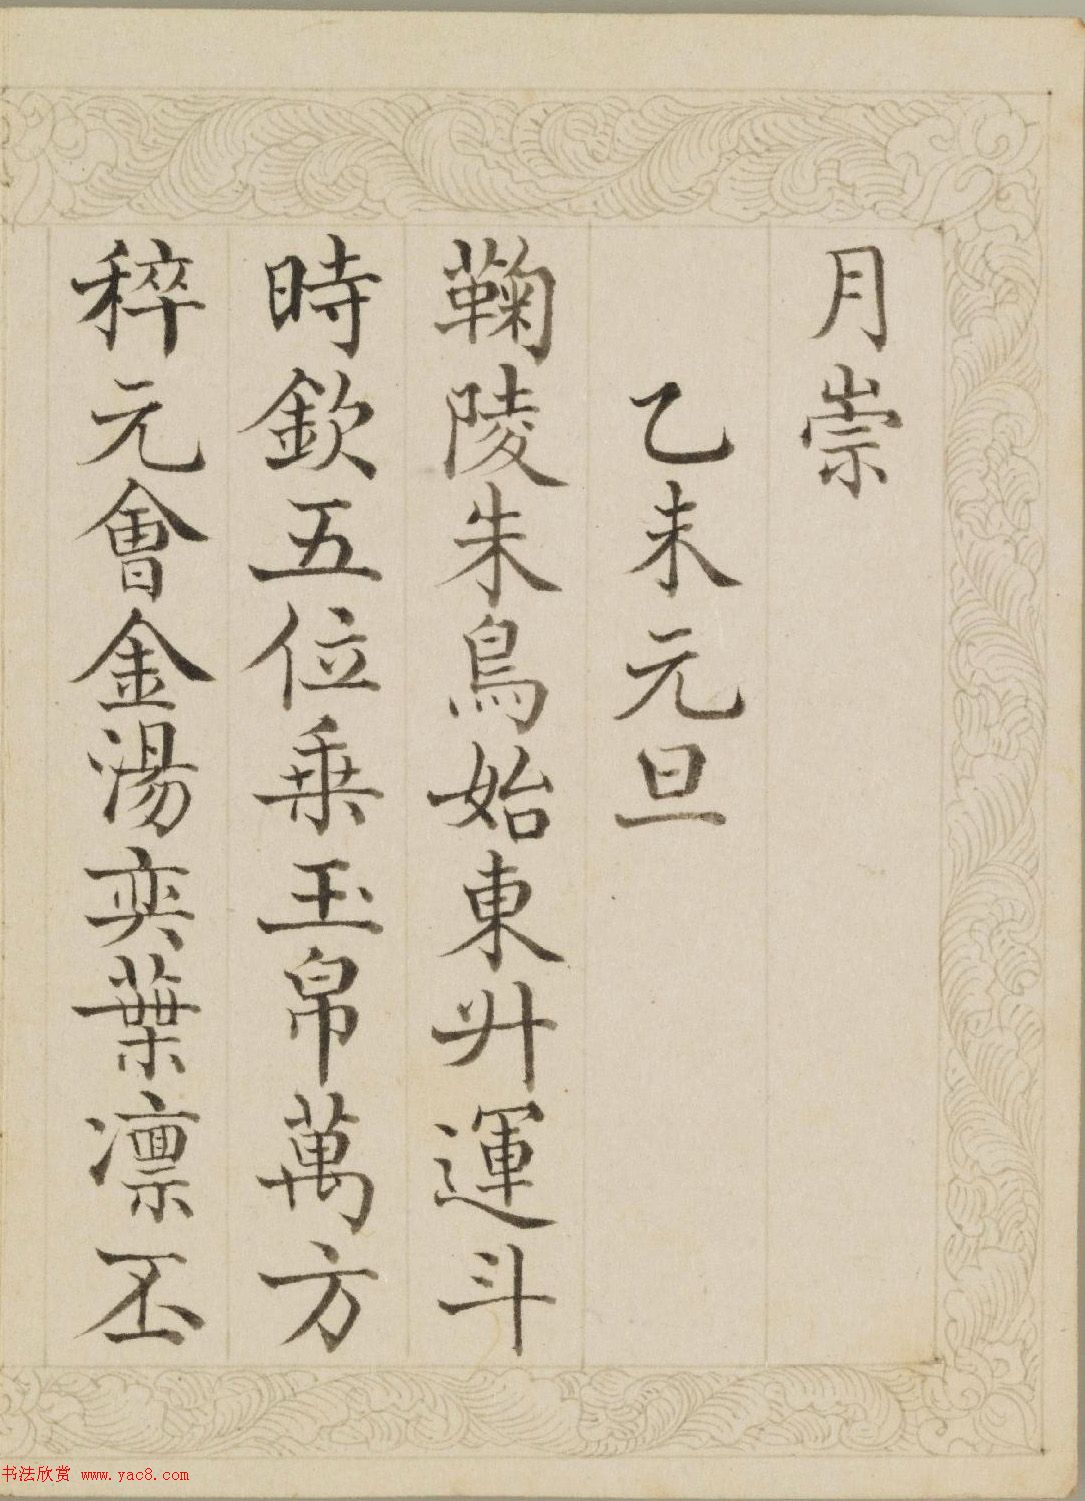 月崇
乙未元旦
鞠陵朱鳥始東升運斗
時欽五位乗玉帛萬方
稡元會金湯奕葉凛丕
书法欣赏 www.yac8.com